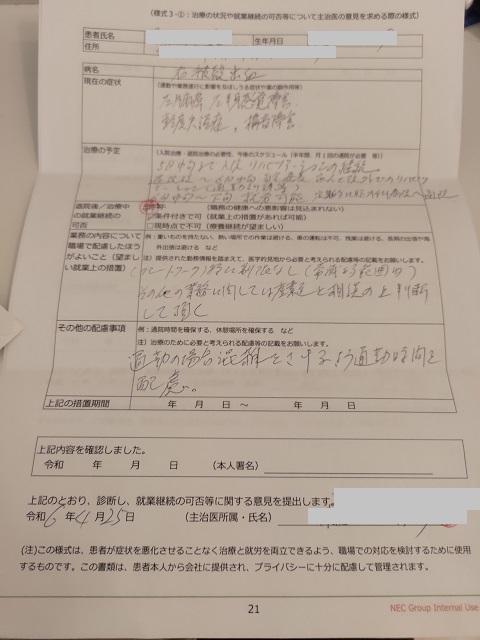 （様式３-①：治療の状況や就業継続の可否等について主治医の意見を求める際の様式）
患者氏名
生年月日
住所
病名
右被殻出血
現在の症状
（通勤や業務遂行に影響を及ぼしうる症状や薬の副作用等）
左片麻痺 左半身感覚障害
軽度失語症、構音障害
治療の予定
（入院治療・通院治療の必要性、今後のスケジュール（半年間、月１回の通院が必要 等））
5月中旬まで入院 リハビリテーションの継続
退院後／治療中の就業継続の可否
□可 （職務の健康への悪影響は見込まれない）
□条件付きで可（就業上の措置があれば可能）
□現時点で不可（療養継続が望ましい）
業務の内容について職場で配慮したほうがよいこと（望ましい就業上の措置）
例：重いものを持たない、暑い場所での作業は避ける、車の運転は不可、残業は避ける、長期の出張や海外出張は避ける など
注）提供された勤務情報を踏まえて、医学的見地から必要と考えられる配慮等の記載をお願いします。
（テレワーク）特に制限なし（常識的範囲内）
その他の業務に関しては産業医と相談の上判断
して頂く
その他の配慮事項
例：通院時間を確保する、休憩場所を確保する など
注）治療のために必要と考えられる配慮等の記載をお願いします。
通勤の場合混雑をさけるよう通勤時間を
配慮。
上記の措置期間
年 月 日 ～ 年 月 日
上記内容を確認しました。
令和 年 月 日 （本人署名）
上記のとおり、診断し、就業継続の可否等に関する意見を提出します。
令和 6 年 4 月 25 日 （主治医所属・氏名）
(注)この様式は、患者が症状を悪化させることなく治療と就労を両立できるよう、職場での対応を検討するために使用
するものです。この書類は、患者本人から会社に提供され、プライバシーに十分に配慮して管理されます。
21
NEC Group Internal Use